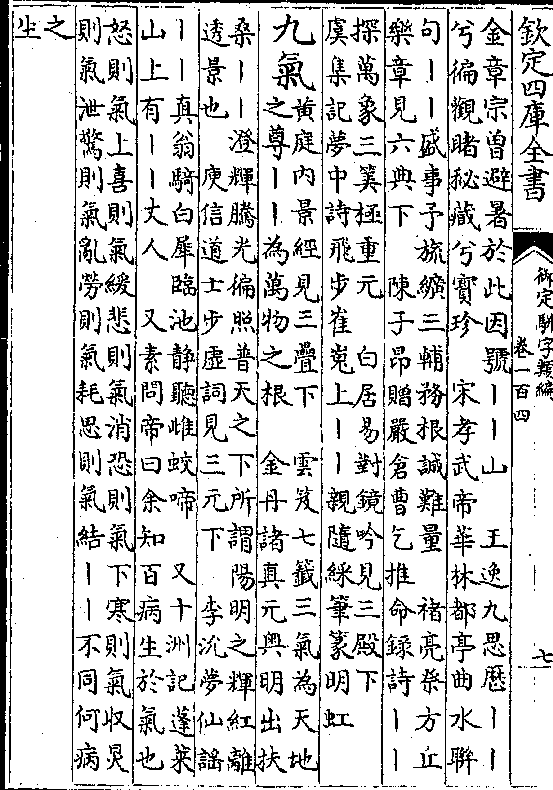 欽定四庫全書
御定駢字類編
卷一百四
七
金章宗曽避暑於此因號丨丨山 王逸九思歴丨丨
兮徧觀睹秘藏兮寳珍 宋孝武帝華林都亭曲水聨
句丨丨盛事予旅纊三輔務根誠難量 禇亮祭方丘
樂章見六典下 陳子昻贈嚴倉曹乞推命錄詩丨丨
探萬象三筭極重元 白居易對鏡吟見三殿下
虞集記夢中詩飛步崔嵬上丨丨親隨綵筆篆明虹
九氣
黄庭内景經見三疊下 雲笈七籤三氣為天地
之尊丨丨為萬物之根 金丹諸真元奥明出扶
桑丨丨澄輝騰光徧照普天之下所謂陽明之輝紅離
透景也 庾信道士步虚詞見三元下 李沇夢仙謡
丨丨真翁騎白犀臨池静聽雌蛟啼 又十洲記蓬萊
山上有丨丨丈人 又素問帝曰余知百病生於氣也
怒則氣上喜則氣緩悲則氣消恐則氣下寒則氣収炅
則氣泄驚則氣亂勞則氣耗思則氣結丨丨不同何病
之
生